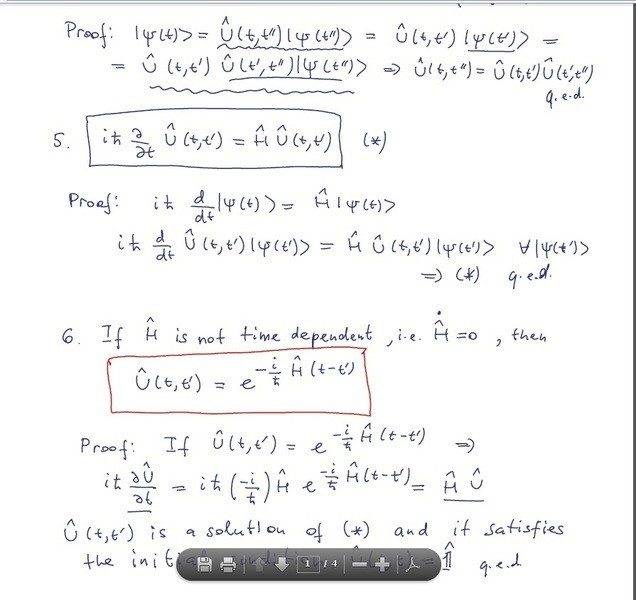 Proof: |ψ(t)> = Û(t,t'')|ψ(t'')> = Û(t,t')|ψ(t')> =
= Û(t,t') Û(t',t'')|ψ(t'')> ⇒ Û(t,t'') = Û(t,t')Û(t',t'')
q.e.d.
5. iħ ∂/∂t Û(t,t') = Ĥ Û(t,t') (*)
Proof: iħ d/dt |ψ(t)> = Ĥ|ψ(t)>
iħ d/dt Û(t,t')|ψ(t')> = Ĥ Û(t,t')|ψ(t')> ∀|ψ(t')>
⇒ (*) q.e.d.
6. If Ĥ is not time dependent, i.e. Ĥ̇ = 0, then
Û(t,t') = e^{-i/ħ Ĥ(t-t')}
Proof: If Û(t,t') = e^{-i/ħ Ĥ(t-t')} ⇒
iħ ∂Û/∂t = iħ(-i/ħ) Ĥ e^{-i/ħ Ĥ(t-t')} = Ĥ Û
Û(t,t') is a solution of (*) and it satisfies
the t) = 𝟙̂ q.e.d
1 / 4